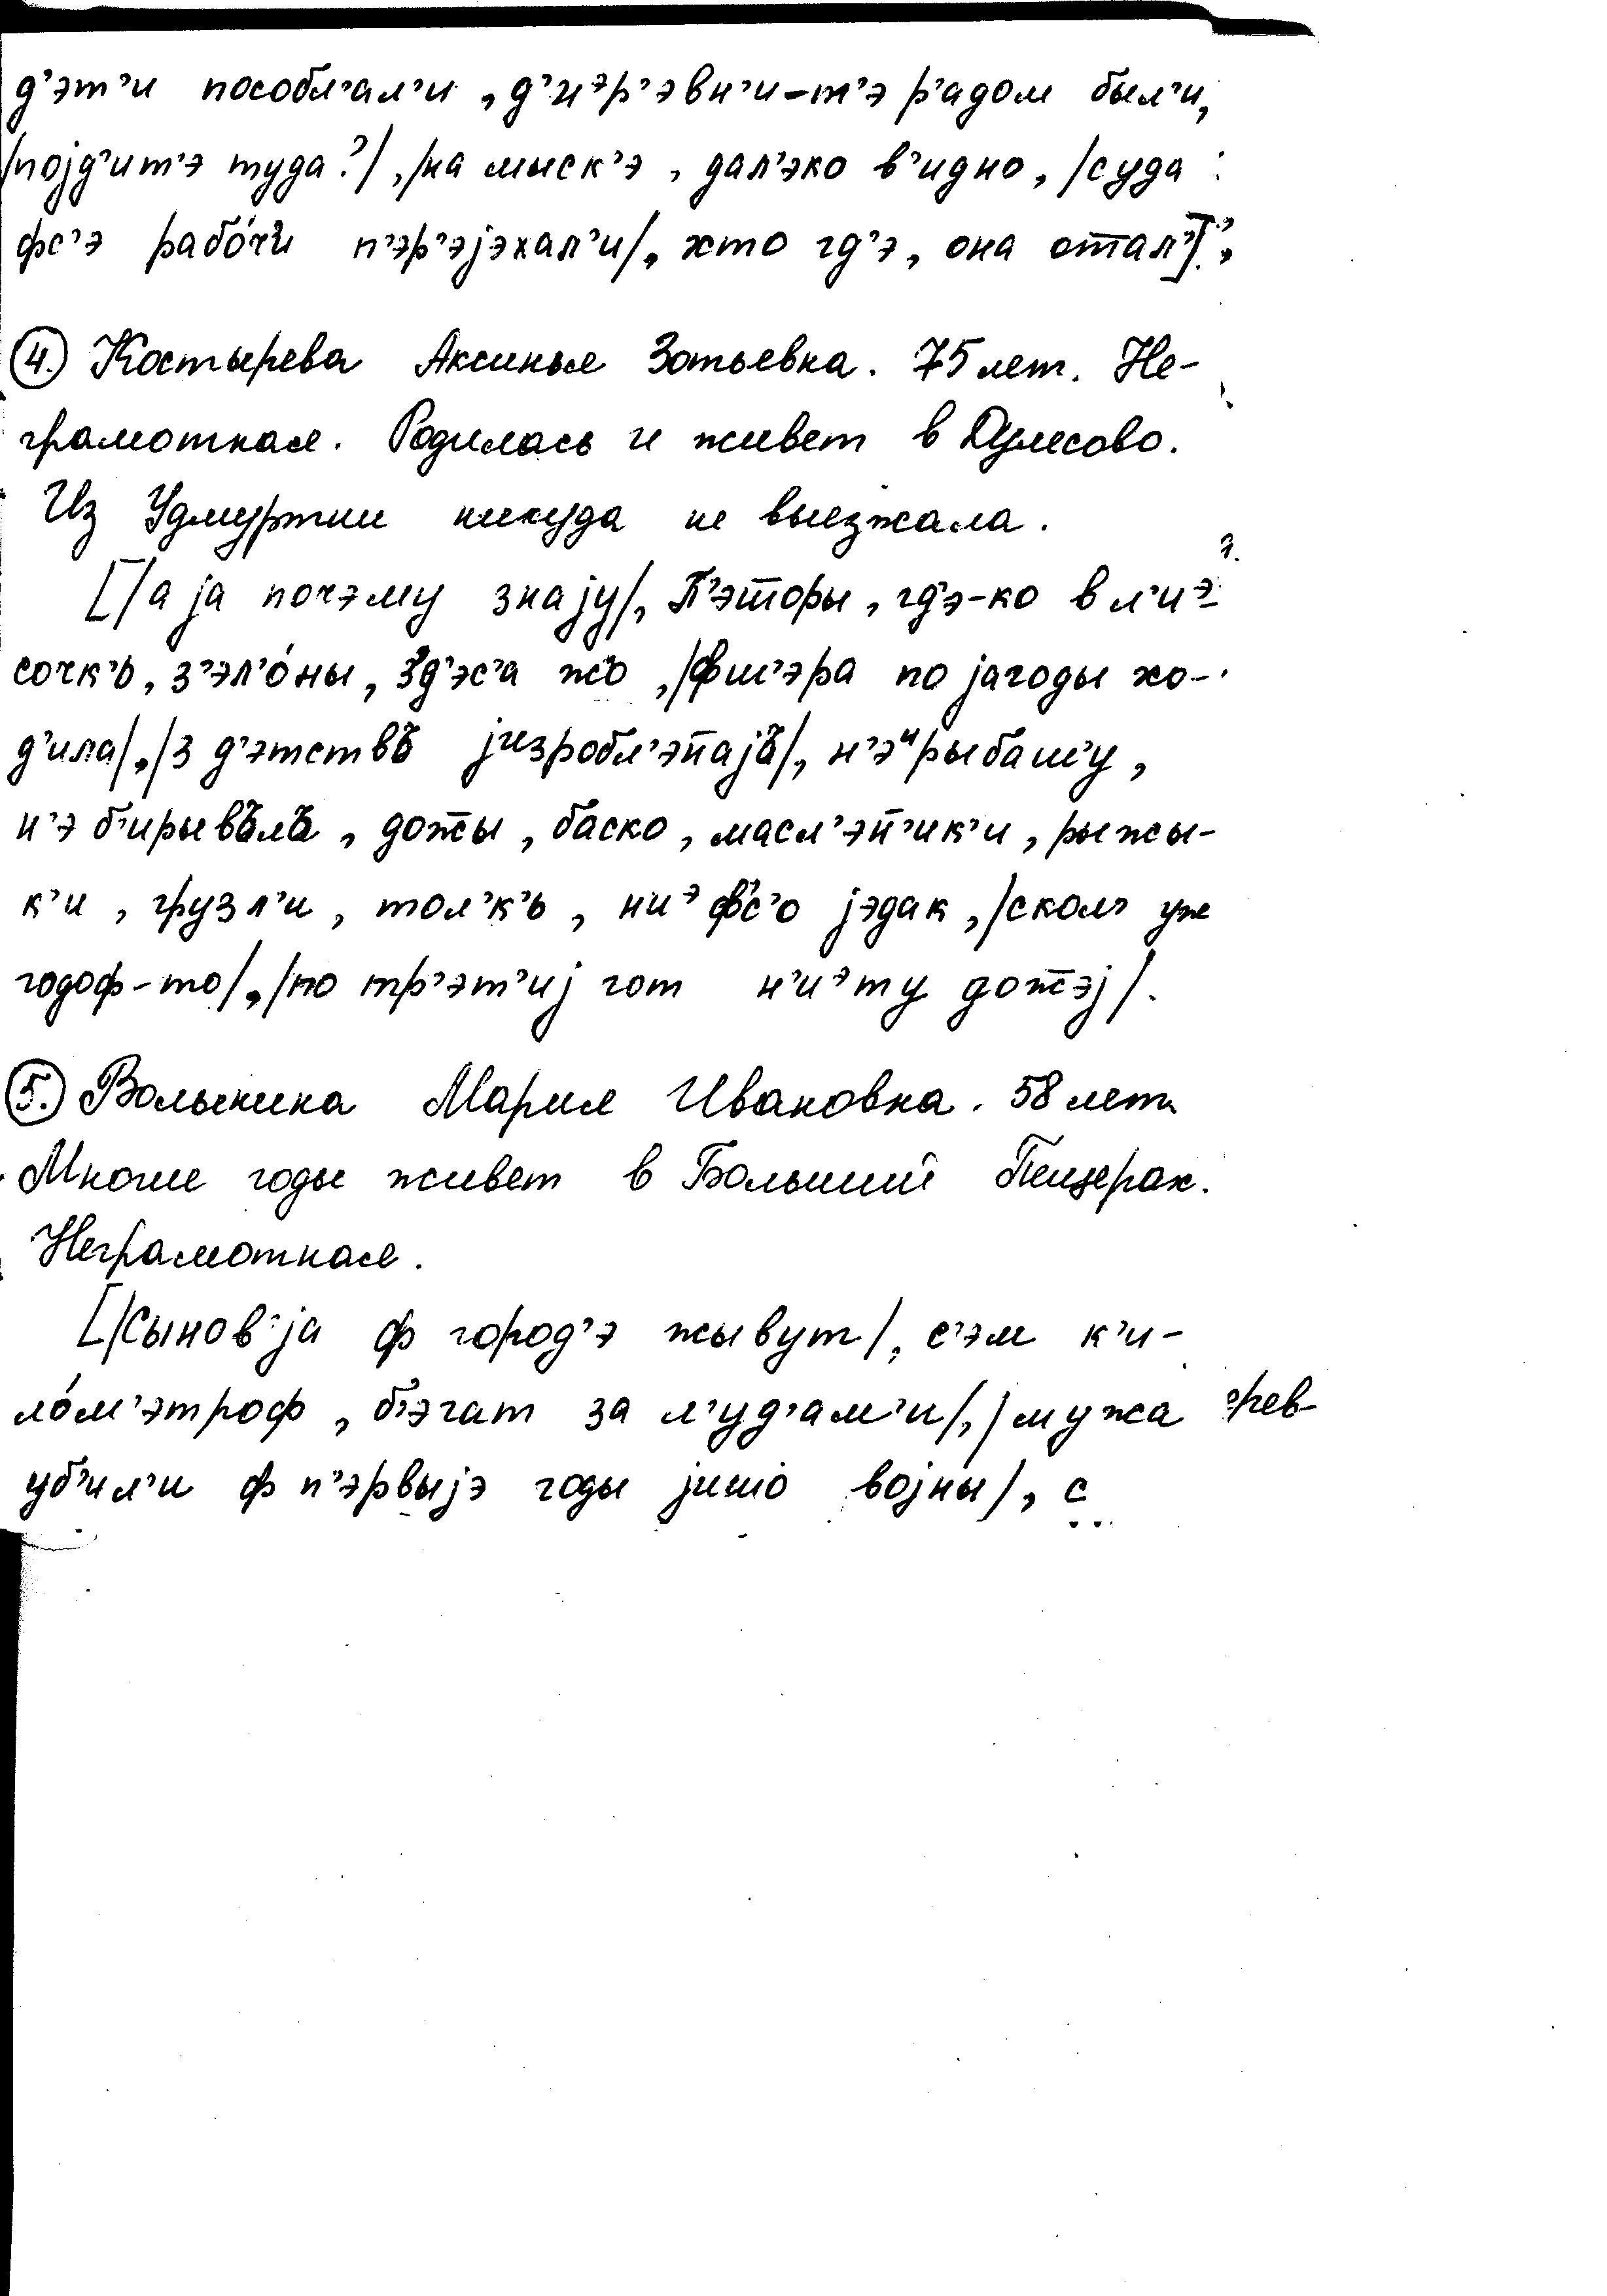 д’эт’и пособл’ал’и, д’иэр’эвн’и-т’э р’адом был’и,
/појд’ит’э туда?/, /на мыск’э, дал’эко в’идно, /суда
фс’э рабо́чи п’эр’эјэхал’и/, хто гд’э, она отал’].
4. Костырева Аксинья Зотьевна. 75 лет. Не-
грамотная. Родилась и живет в Дулесово.
Из Удмуртии никуда не выезжала.
[/а ја почэму знају/, П’эторы, гд’э-ко в л’иэ-
сочк’ь, з’эл’о́ны, зд’эс’а жъ, /фш’эра по јагоды хо-
д’ила/, /з д’этствъ јизробл’энајъ/, н’эирыбашу,
н’э б’ирывълъ, дожы, баско, масл’эн’ик’и, рыжы-
к’и, грузл’и, тол’к’ь, ниэ фс’о јэдак, /скол’ уж
годоф-то/, /по тр’эт’иј гот н’иэту дожэј/.
5. Волынкина Мария Ивановна. 58 лет.
Многие годы живет в Большой Пещерах.
Неграмотная.
[/Сынов’ја ф город’э жывут/, с’эм к’и-
ло́м’этроф, б’эгат за л’уд’ам’и/, /мужа
уб’ил’и ф п’эрвыјэ годы јишо војны/, с